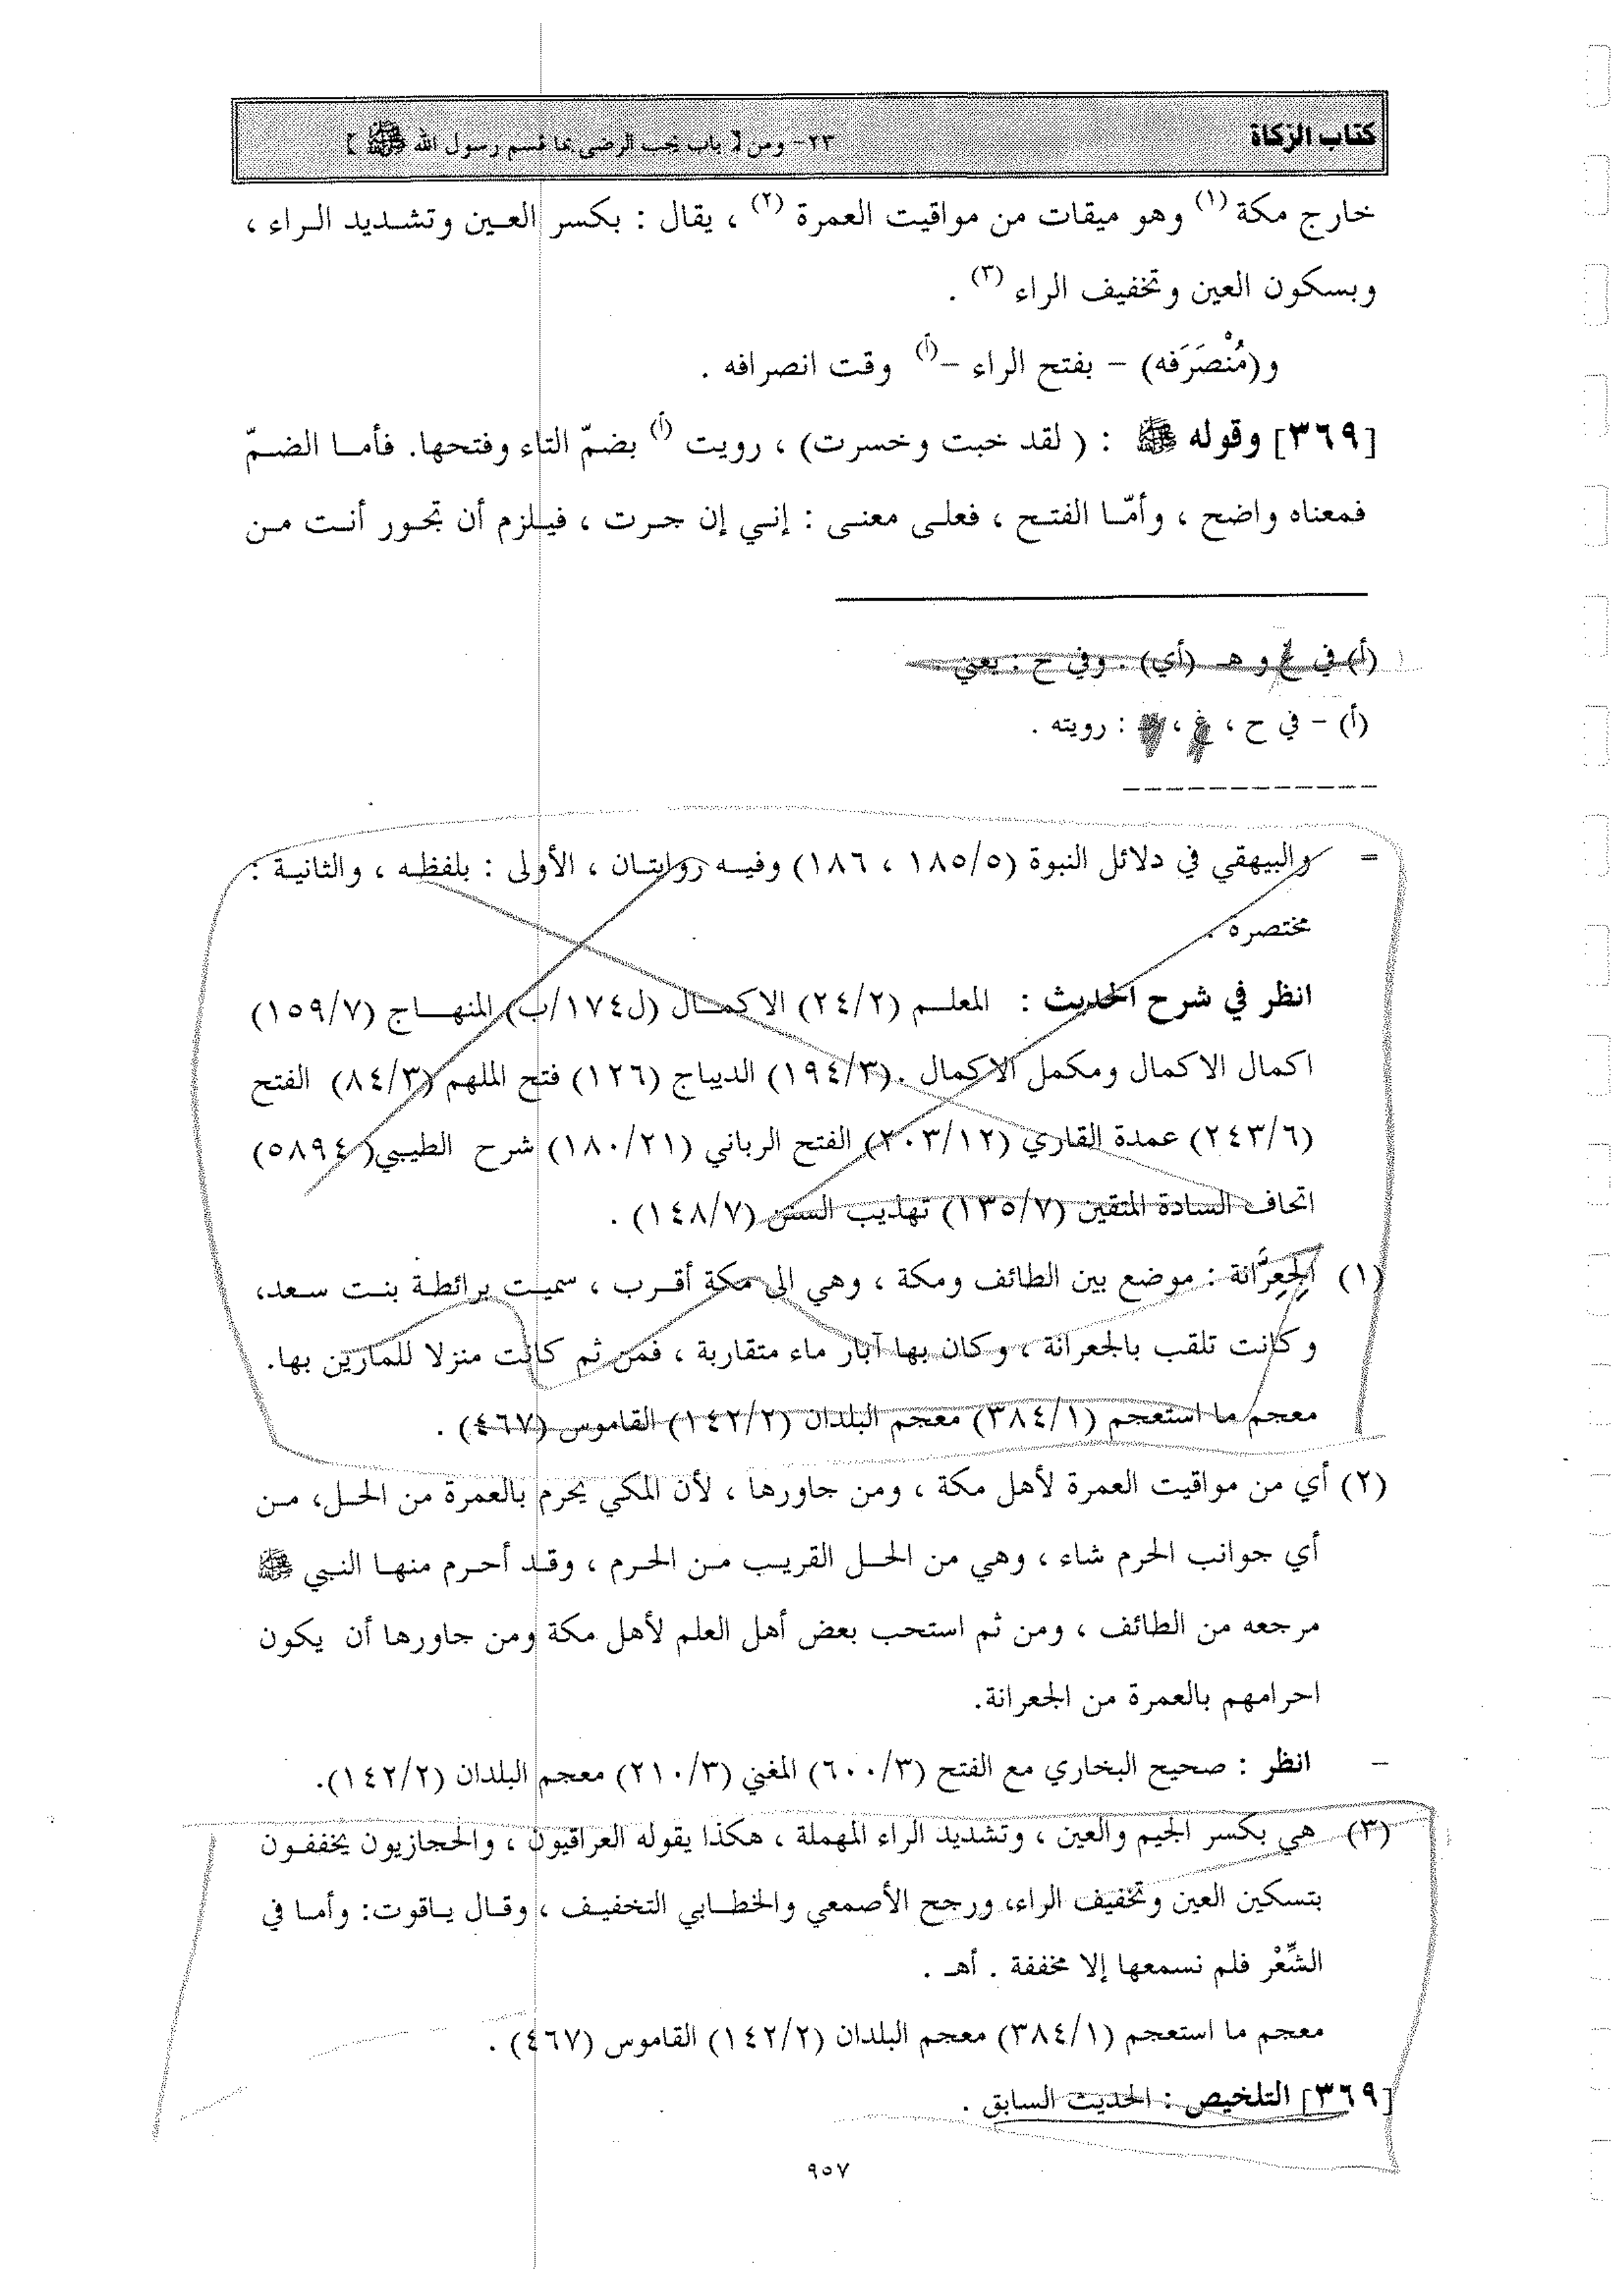 كتاب الزكاة ٢٣- ومن [ باب يجب الرضى بما قسم رسول الله ﷺ ]
خارج مكة (١) وهو ميقات من مواقيت العمرة (٢) ، يقال : بكسر العـين وتشـديد الـراء ،
وبسكون العين وتخفيف الراء (٣) .
و(مُنْصَرَفه) – بفتح الراء –(أ) وقت انصرافه .
[٣٦٩] وقوله ﷺ : ( لقد خبت وخسرت) ، رويت (أ) بضمّ التاء وفتحها. فأمـا الضـمّ
فمعناه واضح ، وأمّـا الفتـح ، فعلـى معنـى : إنـي إن جـرت ، فيـلزم أن تجـور أنـت مـن
(أ) في غ و هـ (أي) . وفي ح : يعني .
(أ) – في ح ، غ ، هـ : رويته .
= والبيهقي في دلائل النبوة (١٨٥/٥ ، ١٨٦) وفيـه روايتـان ، الأولى : بلفظـه ، والثانيـة :
مختصرة .
انظر في شرح الحديث : المعلـم (٢٤/٢) الاكمـال (ل١٧٤/ب) المنهـاج (١٥٩/٧)
اكمال الاكمال ومكمل الاكمال .(١٩٤/٣) الديباج (١٢٦) فتح الملهم (٨٤/٣) الفتح
(٢٤٣/٦) عمدة القاري (٢٠٣/١٢) الفتح الرباني (١٨٠/٢١) شرح الطيبي( ٥٨٩٤)
اتحاف السادة المتقين (١٣٥/٧) تهذيب السنن (١٤٨/٧) .
(١) الِجِعِرَّانة : موضع بين الطائف ومكة ، وهي الى مكة أقـرب ، سميـت برائطـة بنـت سـعد،
وكانت تلقب بالجعرانة ، وكان بها آبار ماء متقاربة ، فمن ثم كانت منزلا للمارين بها.
معجم ما استعجم (٣٨٤/١) معجم البلدان (١٤٢/٢) القاموس (٤٦٧) .
(٢) أي من مواقيت العمرة لأهل مكة ، ومن جاورها ، لأن المكي يحرم بالعمرة من الحـل، مـن
أي جوانب الحرم شاء ، وهي من الحـل القريـب مـن الحـرم ، وقـد أحـرم منهـا النـبي ﷺ
مرجعه من الطائف ، ومن ثم استحب بعض أهل العلم لأهل مكة ومن جاورها أن يكون
احرامهم بالعمرة من الجعرانة.
– انظر : صحيح البخاري مع الفتح (٦٠٠/٣) المغني (٢١٠/٣) معجم البلدان (١٤٢/٢).
(٣) هي بكسر الجيم والعين ، وتشديد الراء المهملة ، هكذا يقوله العراقيون ، والحجازيون يخففـون
بتسكين العين وتخفيف الراء، ورجح الأصمعي والخطـابي التخفيـف ، وقـال يـاقوت: وأمـا في
الشِّعْر فلم نسمعها إلا مخففة . أهـ .
معجم ما استعجم (٣٨٤/١) معجم البلدان (١٤٢/٢) القاموس (٤٦٧) .
[٣٦٩] التلخيص : الحديث السابق .
٩٥٧